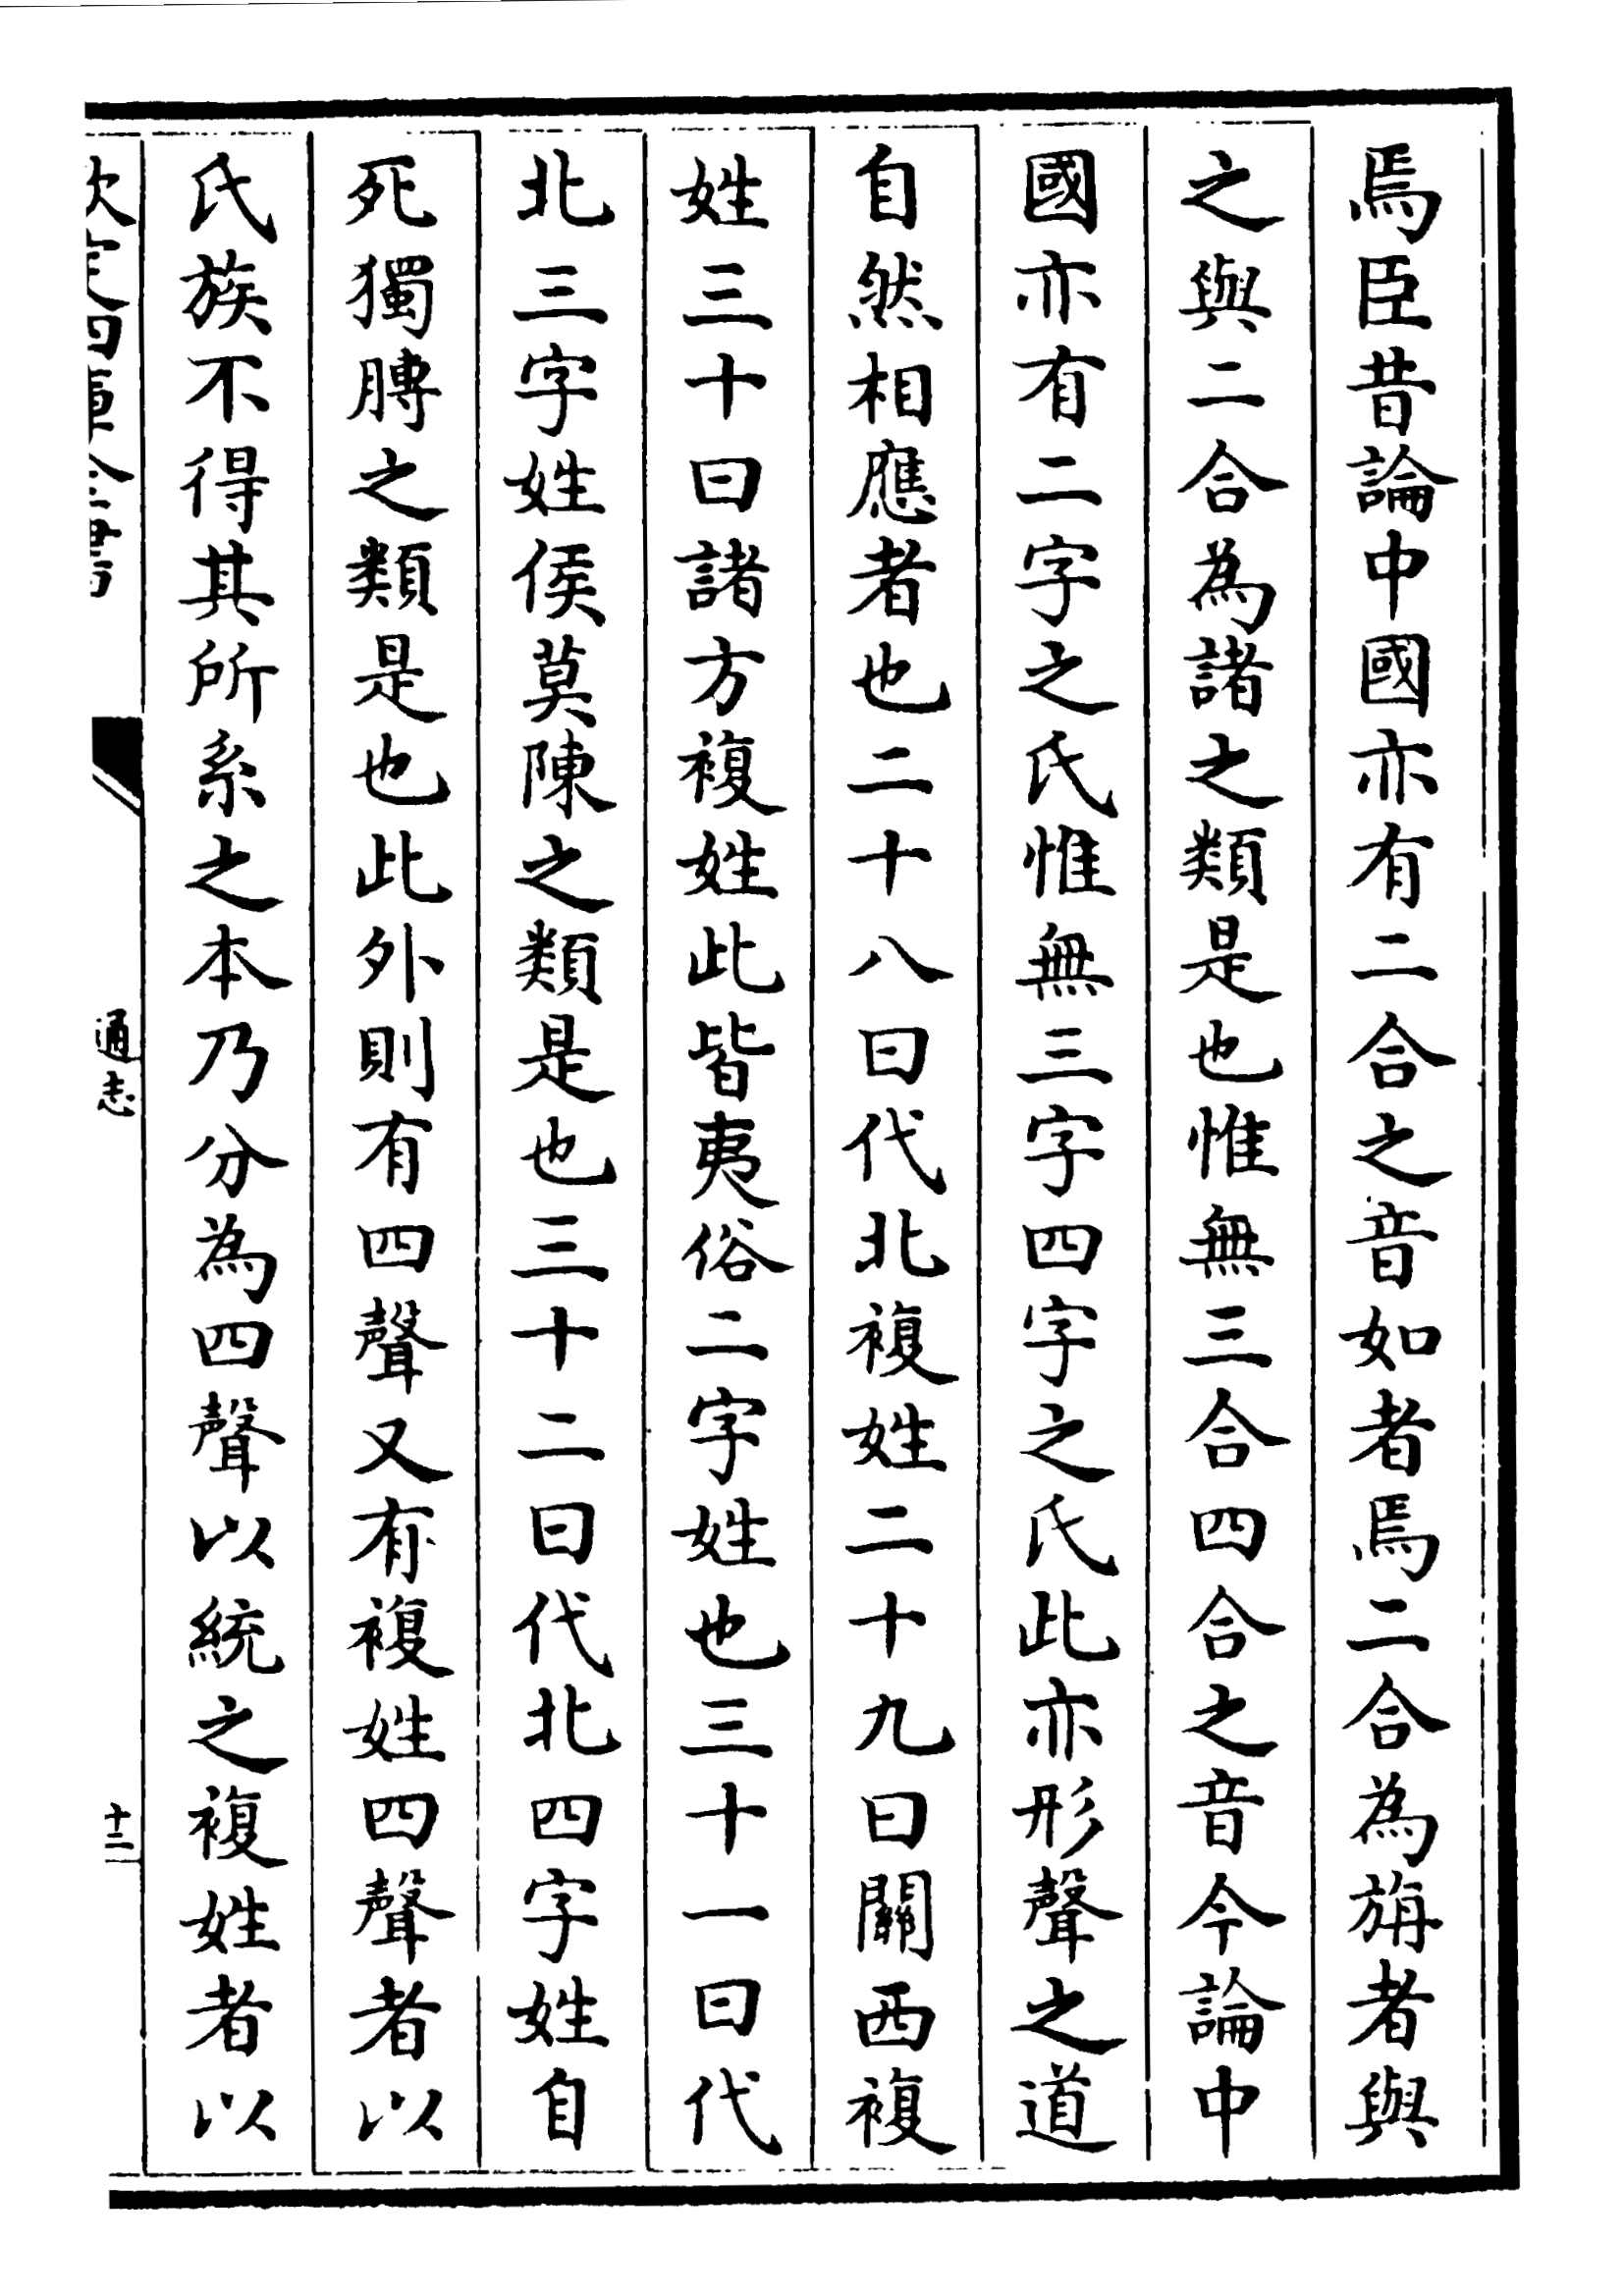 焉臣昔論中國亦有二合之音如者焉二合為旃者與
之與二合為諸之類是也惟無三合四合之音今論中
國亦有二字之氏惟無三字四字之氏此亦形聲之道
自然相應者也二十八曰代北複姓二十九曰關西複
姓三十曰諸方複姓此皆夷俗二字姓也三十一曰代
北三字姓侯莫陳之類是也三十二曰代北四字姓自
死獨膊之類是也此外則有四聲又有複姓四聲者以
氏族不得其所系之本乃分為四聲以統之複姓者以
欽定四庫全書
通志
十二